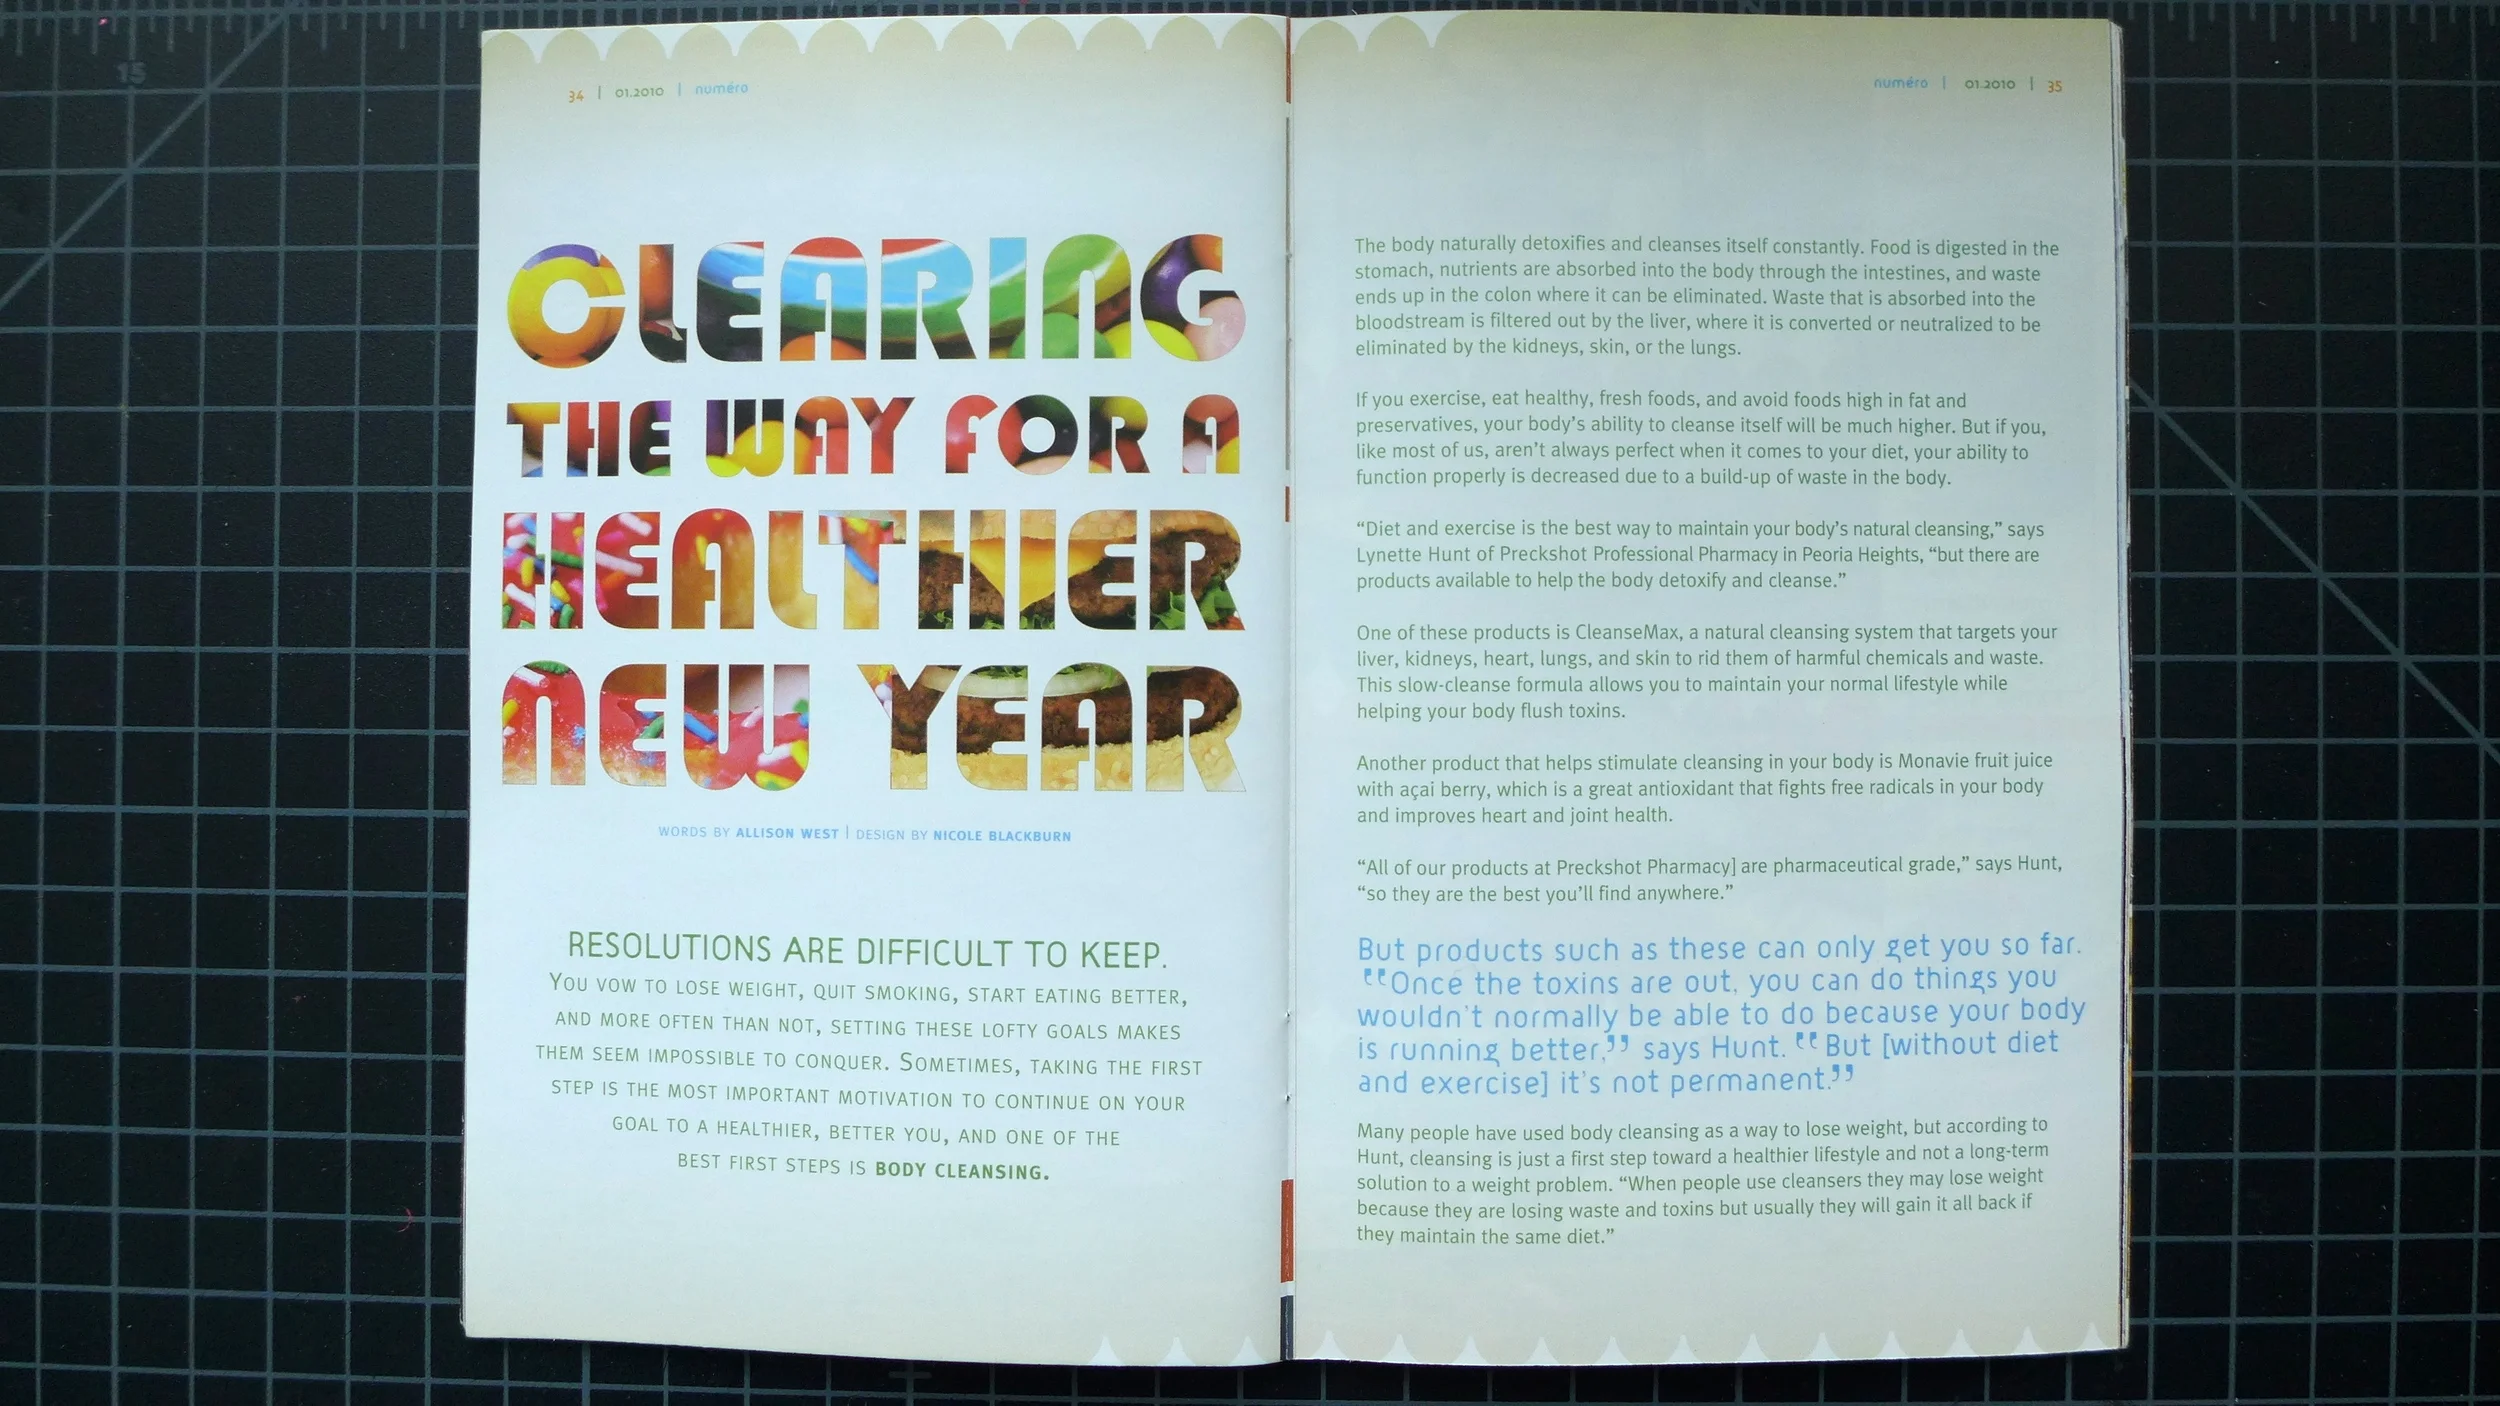 34 | 01.2010 | numéro
CLEARING
THE WAY FOR A
HEALTHIER
NEW YEAR
WORDS BY ALLISON WEST | DESIGN BY NICOLE BLACKBURN
RESOLUTIONS ARE DIFFICULT TO KEEP.
YOU VOW TO LOSE WEIGHT, QUIT SMOKING, START EATING BETTER,
AND MORE OFTEN THAN NOT, SETTING THESE LOFTY GOALS MAKES
THEM SEEM IMPOSSIBLE TO CONQUER. SOMETIMES, TAKING THE FIRST
STEP IS THE MOST IMPORTANT MOTIVATION TO CONTINUE ON YOUR
GOAL TO A HEALTHIER, BETTER YOU, AND ONE OF THE
BEST FIRST STEPS IS BODY CLEANSING.
numéro | 01.2010 | 35
The body naturally detoxifies and cleanses itself constantly. Food is digested in the
stomach, nutrients are absorbed into the body through the intestines, and waste
ends up in the colon where it can be eliminated. Waste that is absorbed into the
bloodstream is filtered out by the liver, where it is converted or neutralized to be
eliminated by the kidneys, skin, or the lungs.
If you exercise, eat healthy, fresh foods, and avoid foods high in fat and
preservatives, your body's ability to cleanse itself will be much higher. But if you,
like most of us, aren't always perfect when it comes to your diet, your ability to
function properly is decreased due to a build-up of waste in the body.
“Diet and exercise is the best way to maintain your body's natural cleansing,” says
Lynette Hunt of Preckshot Professional Pharmacy in Peoria Heights, “but there are
products available to help the body detoxify and cleanse.”
One of these products is CleanseMax, a natural cleansing system that targets your
liver, kidneys, heart, lungs, and skin to rid them of harmful chemicals and waste.
This slow-cleanse formula allows you to maintain your normal lifestyle while
helping your body flush toxins.
Another product that helps stimulate cleansing in your body is Monavie fruit juice
with açai berry, which is a great antioxidant that fights free radicals in your body
and improves heart and joint health.
“All of our products at Preckshot Pharmacy] are pharmaceutical grade,” says Hunt,
“so they are the best you'll find anywhere.”
But products such as these can only get you so far.
“Once the toxins are out, you can do things you
wouldn't normally be able to do because your body
is running better,” says Hunt. “But [without diet
and exercise] it's not permanent.”
Many people have used body cleansing as a way to lose weight, but according to
Hunt, cleansing is just a first step toward a healthier lifestyle and not a long-term
solution to a weight problem. “When people use cleansers they may lose weight
because they are losing waste and toxins but usually they will gain it all back if
they maintain the same diet.”
15